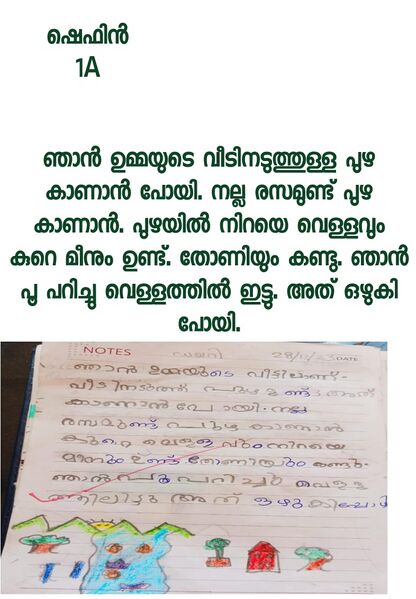 ഷെഫിൻ
1A
ഞാൻ ഉമ്മയുടെ വീടിനടുത്തുള്ള പുഴ
കാണാൻ പോയി. നല്ല രസമുണ്ട് പുഴ
കാണാൻ. പുഴയിൽ നിറയെ വെള്ളവും
കുറെ മീനും ഉണ്ട്. തോണിയും കണ്ടു. ഞാൻ
പൂ പറിച്ചു വെള്ളത്തിൽ ഇട്ടു. അത് ഒഴുകി
പോയി.
NOTES ഡയറി DATE
ഞാൻ ഉമ്മയുടെ വീട്ടിലാണ്.
പുഴ ഉണ്ട് അത്
കാണാൻ പോയി. നല്ല
രസമുണ്ട് പുഴ കാണാൻ
കുറെ വെള്ളവും നിറയെ
മീനും ഉണ്ട്. തോണിയും കണ്ടു.
ഞാൻ പൂ പറിച്ചു വെള്ള
ത്തിലിട്ടു അത് ഒഴുകിപോയി